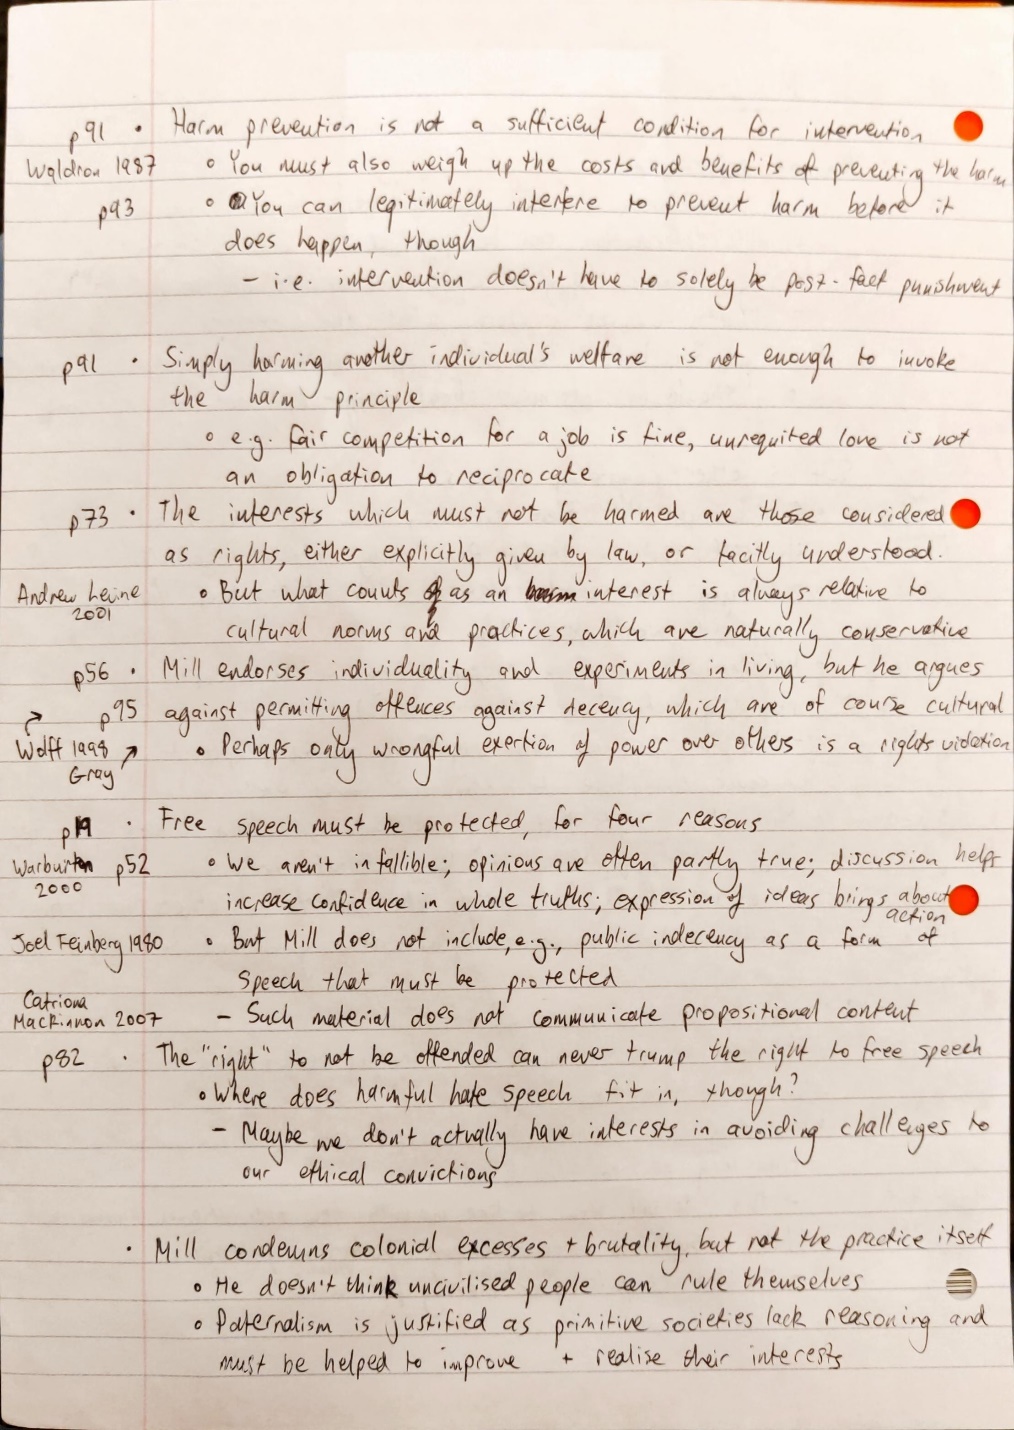 p91 • Harm prevention is not a sufficient condition for intervention
Waldron 1987 ◦ You must also weigh up the costs and benefits of preventing the harm
p93 ◦ You can legitimately interfere to prevent harm before it
does happen, though
– i.e. intervention doesn't have to solely be post-fact punishment
p91 • Simply harming another individual's welfare is not enough to invoke
the harm principle
◦ e.g. fair competition for a job is fine, unrequited love is not
an obligation to reciprocate
p73 • The interests which must not be harmed are those considered
as rights, either explicitly given by law, or tacitly understood.
Andrew Levine 2001 ◦ But what counts as an interest is always relative to
cultural norms and practices, which are naturally conservative
p56 • Mill endorses individuality and experiments in living, but he argues
p95 against permitting offences against decency, which are of course cultural
Wolff 1998 Gray ◦ Perhaps only wrongful exertion of power over others is a rights violation
p19 • Free speech must be protected, for four reasons
Warburton 2000 p52 ◦ We aren't infallible; opinions are often partly true; discussion helps
increase confidence in whole truths; expression of ideas brings about action
Joel Feinberg 1980 ◦ But Mill does not include, e.g., public indecency as a form of
speech that must be protected
Catriona MacKinnon 2007 – Such material does not communicate propositional content
p82 • The "right" to not be offended can never trump the right to free speech
◦ Where does harmful hate speech fit in, though?
– Maybe we don't actually have interests in avoiding challenges to
our ethical convictions
• Mill condemns colonial excesses + brutality, but not the practice itself
◦ He doesn't think uncivilised people can rule themselves
◦ Paternalism is justified as primitive societies lack reasoning and
must be helped to improve + realise their interests